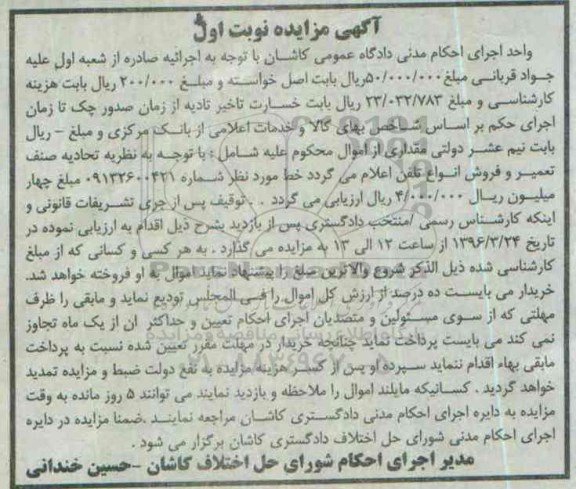 آگهی مزایده نوبت اول
واحد اجرای احکام مدنی دادگاه عمومی کاشان با توجه به اجرائیه صادره از شعبه اول علیه
جواد قربانی مبلغ ۵۰/۰۰۰/۰۰۰ریال بابت اصل خواسته و مبلغ ۲۰۰/۰۰۰ ریال بابت هزینه
کارشناسی و مبلغ ۲۳/۰۳۲/۷۸۳ ریال بابت خسارت تاخیر تادیه از زمان صدور چک تا زمان
اجرای حکم بر اساس شاخص بهای کالا و خدمات اعلامی از بانک مرکزی و مبلغ - ریال
بابت نیم عشر دولتی مقداری از اموال محکوم علیه شامل : با توجه به نظریه تحادیه صنف
تعمیر و فروش انواع تلفن اعلام می گردد خط مورد نظر شماره ۰۹۱۳۲۶۰۰۴۲۱ مبلغ چهار
میلیون ریال ۴/۰۰۰/۰۰۰ ریال ارزیابی می گردد . . توقیف پس از جری تشریفات قانونی و
اینکه کارشناس رسمی /منتخب دادگستری پس از بازدید بشرح ذیل اقدام به ارزیابی نموده در
تاریخ ۱۳۹۶/۳/۲۴ از ساعت ۱۲ الی ۱۳ به مزایده می گذارد . به هر کسی و کسانی که از مبلغ
کارشناسی شده ذیل الذکر شروع والاترین مبلغ را پیشنهاد نماید اموال به او فروخته خواهد شد.
خریدار می بایست ده درصد از ارزش کل اموال را فی المجلس تودیع نماید و مابقی را ظرف
مهلتی که از سوی مسئولین و متصدیان اجرای احکام تعیین و حداکثر آن از یک ماه تجاوز
نمی کند می بایست پرداخت نماید چنانچه خریدار در مهلت مقرر تعیین شده نسبت به پرداخت
مابقی بهاء اقدام ننماید سپرده او پس از کسر هزینه مزایده به نفع دولت ضبط و مزایده تمدید
خواهد گردید . کسانیکه مایلند اموال را ملاحظه و بازدید نمایند می توانند ۵ روز مانده به وقت
مزایده به دایره اجرای احکام مدنی دادگستری کاشان مراجعه نمایند .ضمنا مزایده در دایره
اجرای احکام مدنی شورای حل اختلاف دادگستری کاشان برگزار می شود .
مدیر اجرای احکام شورای حل اختلاف کاشان -حسین خندانی